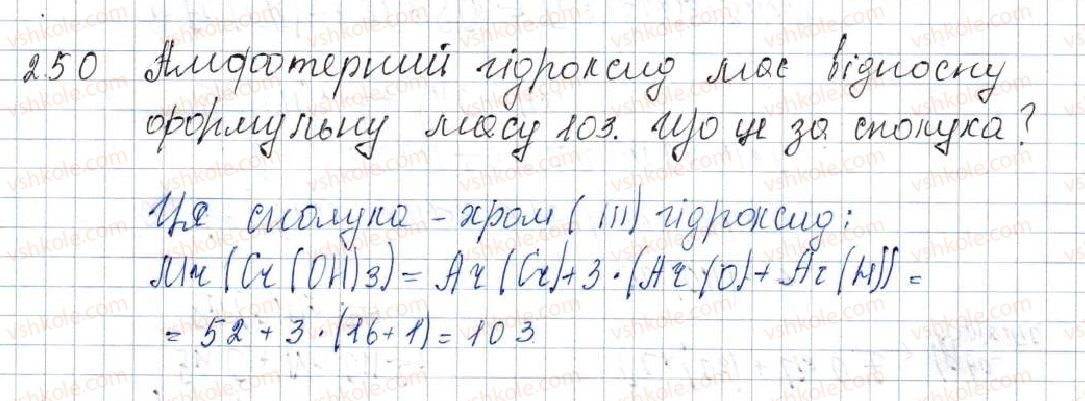 250 Амфотерний гідроксид має відносну
формульну масу 103. Що це за сполука?
Ця сполука - хром (III) гідроксид:
Mr (Cr(OH)3) = Ar(Cr) + 3 · (Ar(O) + Ar(H)) =
= 52 + 3 · (16 + 1) = 103